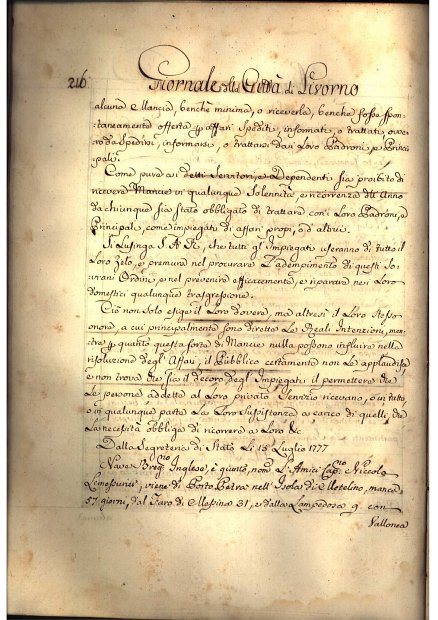 216 Giornale della Città di Livorno
alcuna Mancia, benche minima, o riceverla, benche fosse spon-
:taneamente offerta p affari spediti, informati, o trattati, ovve
ro da spedirsi, informarsi, o trattarsi dai Loro Padroni, e Princi
pali.
Come pure a i detti Servitori, e Dependenti sia proibito di
ricevere Mancie in qualunque Solennità, e ricorrenza dell'Anno
da chiunque sia stato obbligato di trattare con i Loro Padroni, e
Principali, come impiegati di affari propri, o d'altrui.
Si Lusinga S. A. R., che tutti gl'Impiegati useranno di tutto il
Loro zelo, e premura nel procurare L'adempimento di questi So
vrani Ordini, e nel prevenire efficacemente, e riparare nei Loro
domestici qualunque trasgressione.
Ciò non solo esige il Loro dovere, ma altresì il Loro stesso
onore, a cui principalmente sono dirette Le Reali Intenzioni, men
tre p quanto questa sorta di Mancie nulla possono influire nella
risoluzione degl'Affari, il Pubblico certamente non Le applaudisce,
e non trova che sia il decoro degl'Impiegati il permettere che
Le persone addette al Loro privato Servizio ricevano, o in tutto
o in qualunque parte La Loro sussistenza a carico di quelli, che
La necessità obbliga di ricorrere a Loro &c.
Dalla Segreteria di Stato Li 15 Luglio 1777
Nave Breg.no Inglese, è giunto, nom. L'Amici Cap.no Niccolo
viene di Porto Petra nell'Isola di Metelino, manca
57. giorni, dal Faro di Messina 31, e dalla Lampedosa 9. con
Vallonea